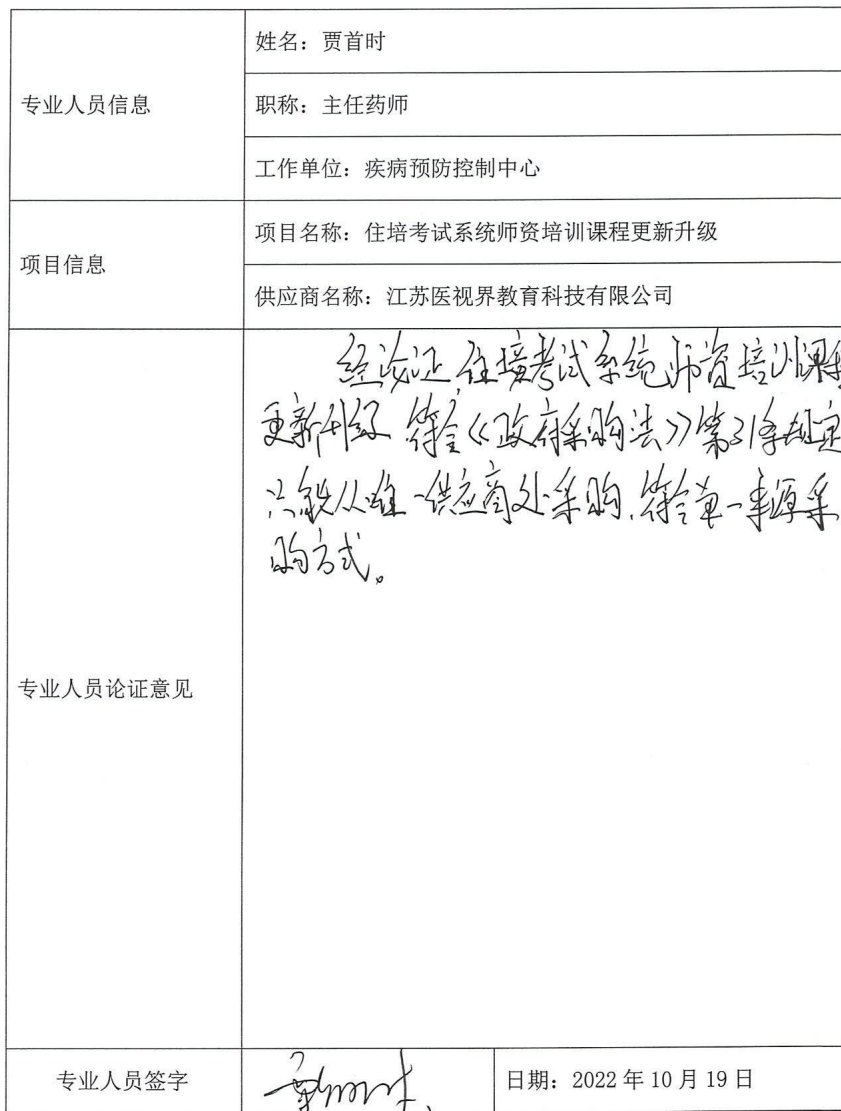 姓名：贾首时
专业人员信息
职称：主任药师
工作单位：疾病预防控制中心
项目信息
项目名称：住培考试系统师资培训课程更新升级
供应商名称：江苏医视界教育科技有限公司
专业人员论证意见
经论证,住培考试系统师资培训课程
更新升级 符合《政府采购法》第31条规定
只能从唯一供应商处采购,符合单一来源采
购方式。
专业人员签字
日期：2022年10月19日